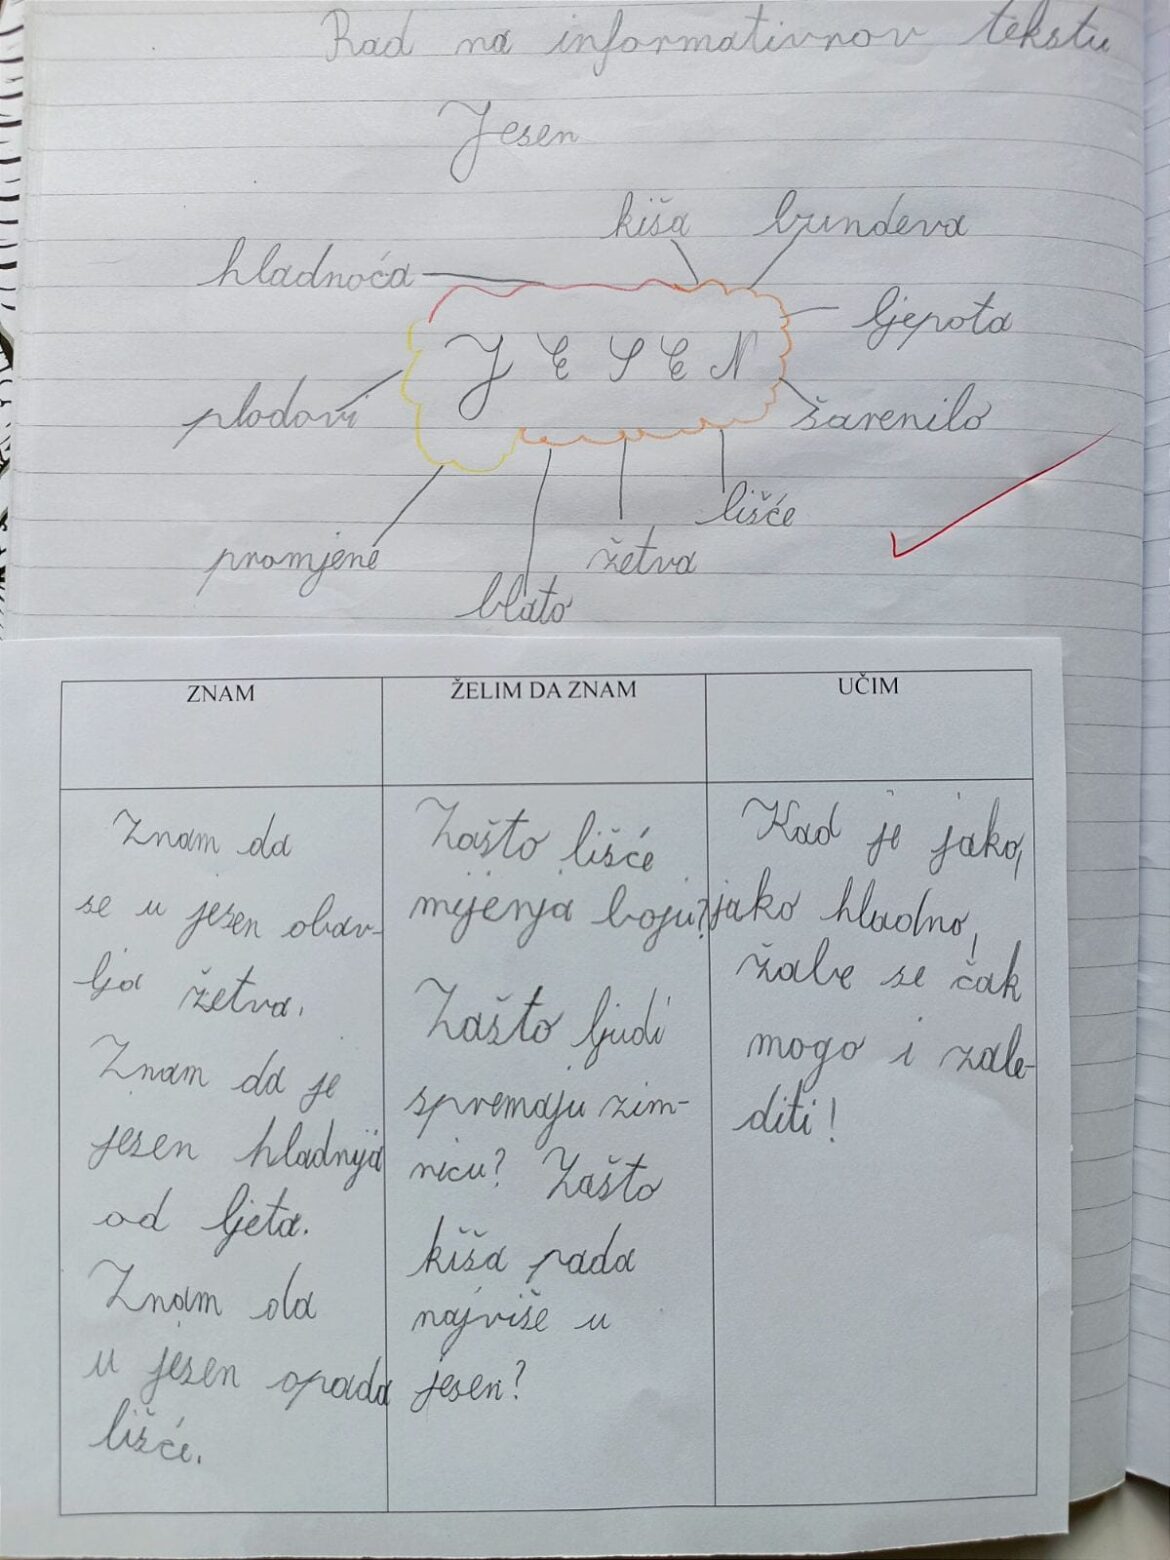 Rad na informativnov tekstu
Jesen
kiša
bundeva
hladnoća
ljepota
JESEN
plodovi
šarenilo
lišće
promjene
žetva
blato
ZNAM
Znam da
se u jesen obav-
lja žetva.
Znam da je
jesen hladnija
od ljeta.
Znam da
u jesen opada
lišće.
ŽELIM DA ZNAM
Zašto lišće
mijenja boju?
Zašto ljudi
spremaju zim-
nicu? Zašto
kiša pada
najviše u
jesen?
UČIM
Kad je jako,
jako hladno,
žabe se čak
mogo i zale-
diti!